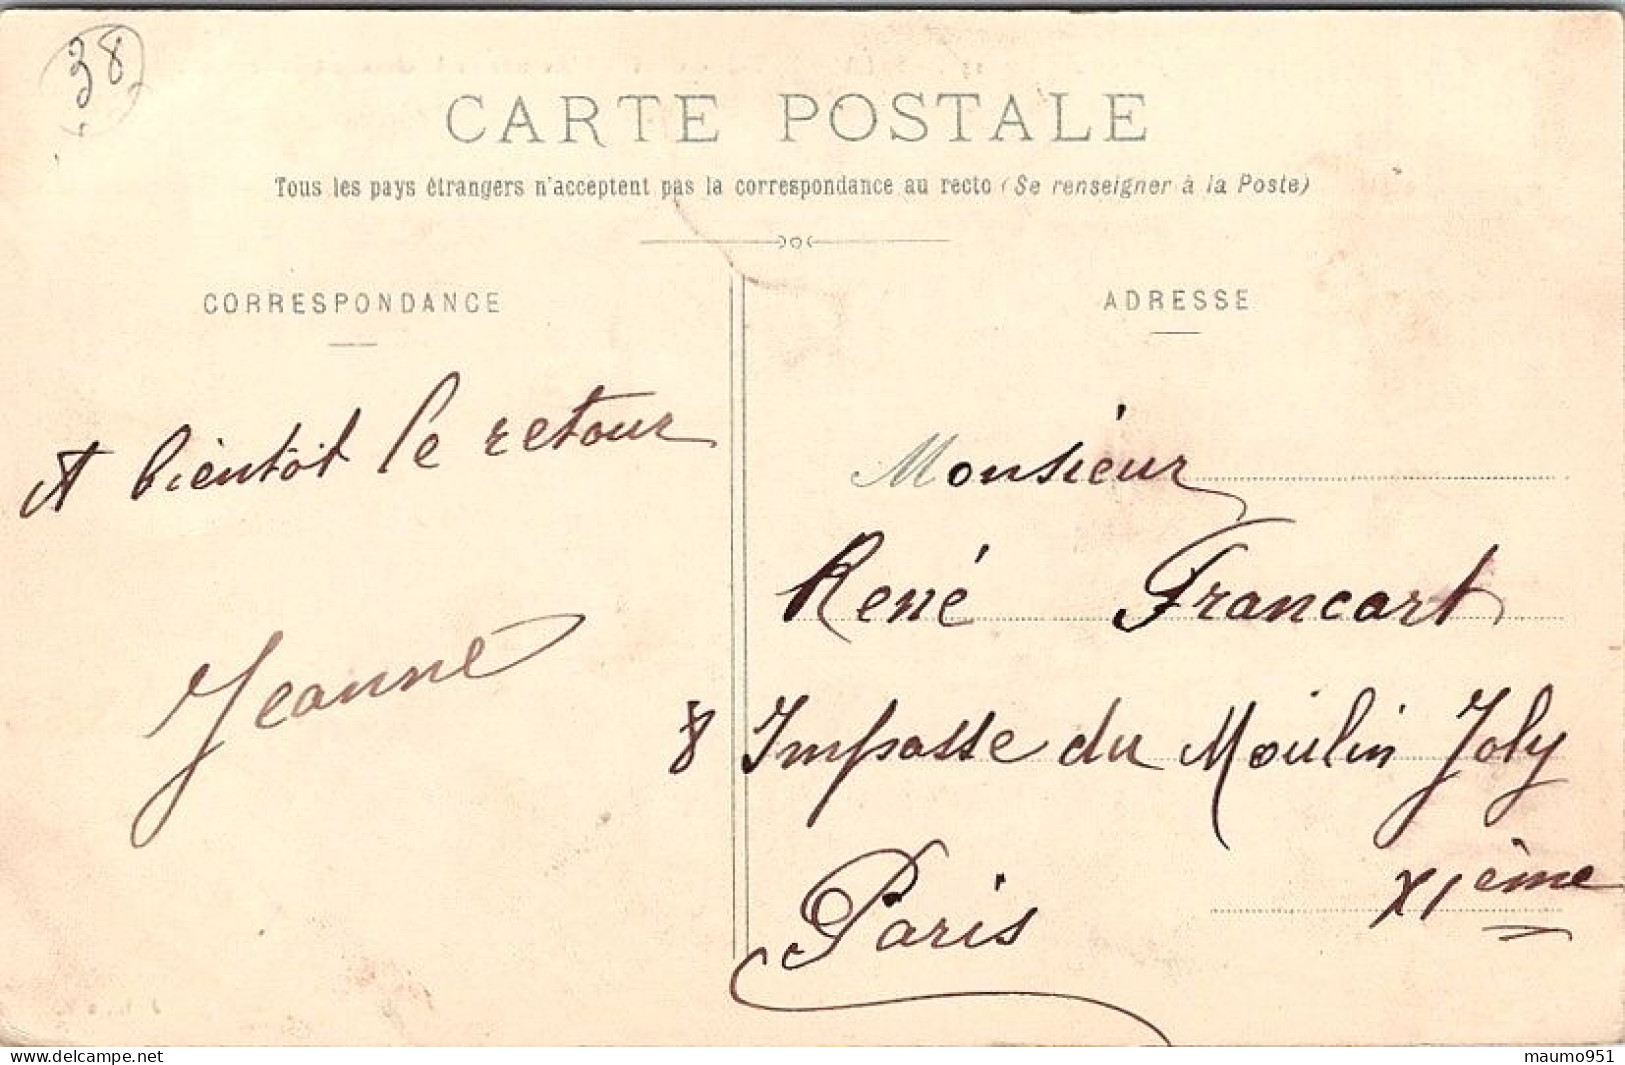 38
CARTE POSTALE
Tous les pays étrangers n'acceptent pas la correspondance au recto (Se renseigner à la Poste)
CORRESPONDANCE
A bientôt le retour
Jeanne
ADRESSE
Monsieur
René Francart
8 Impasse du Moulin Joly
Paris XIème
delcampe.net
maumo951